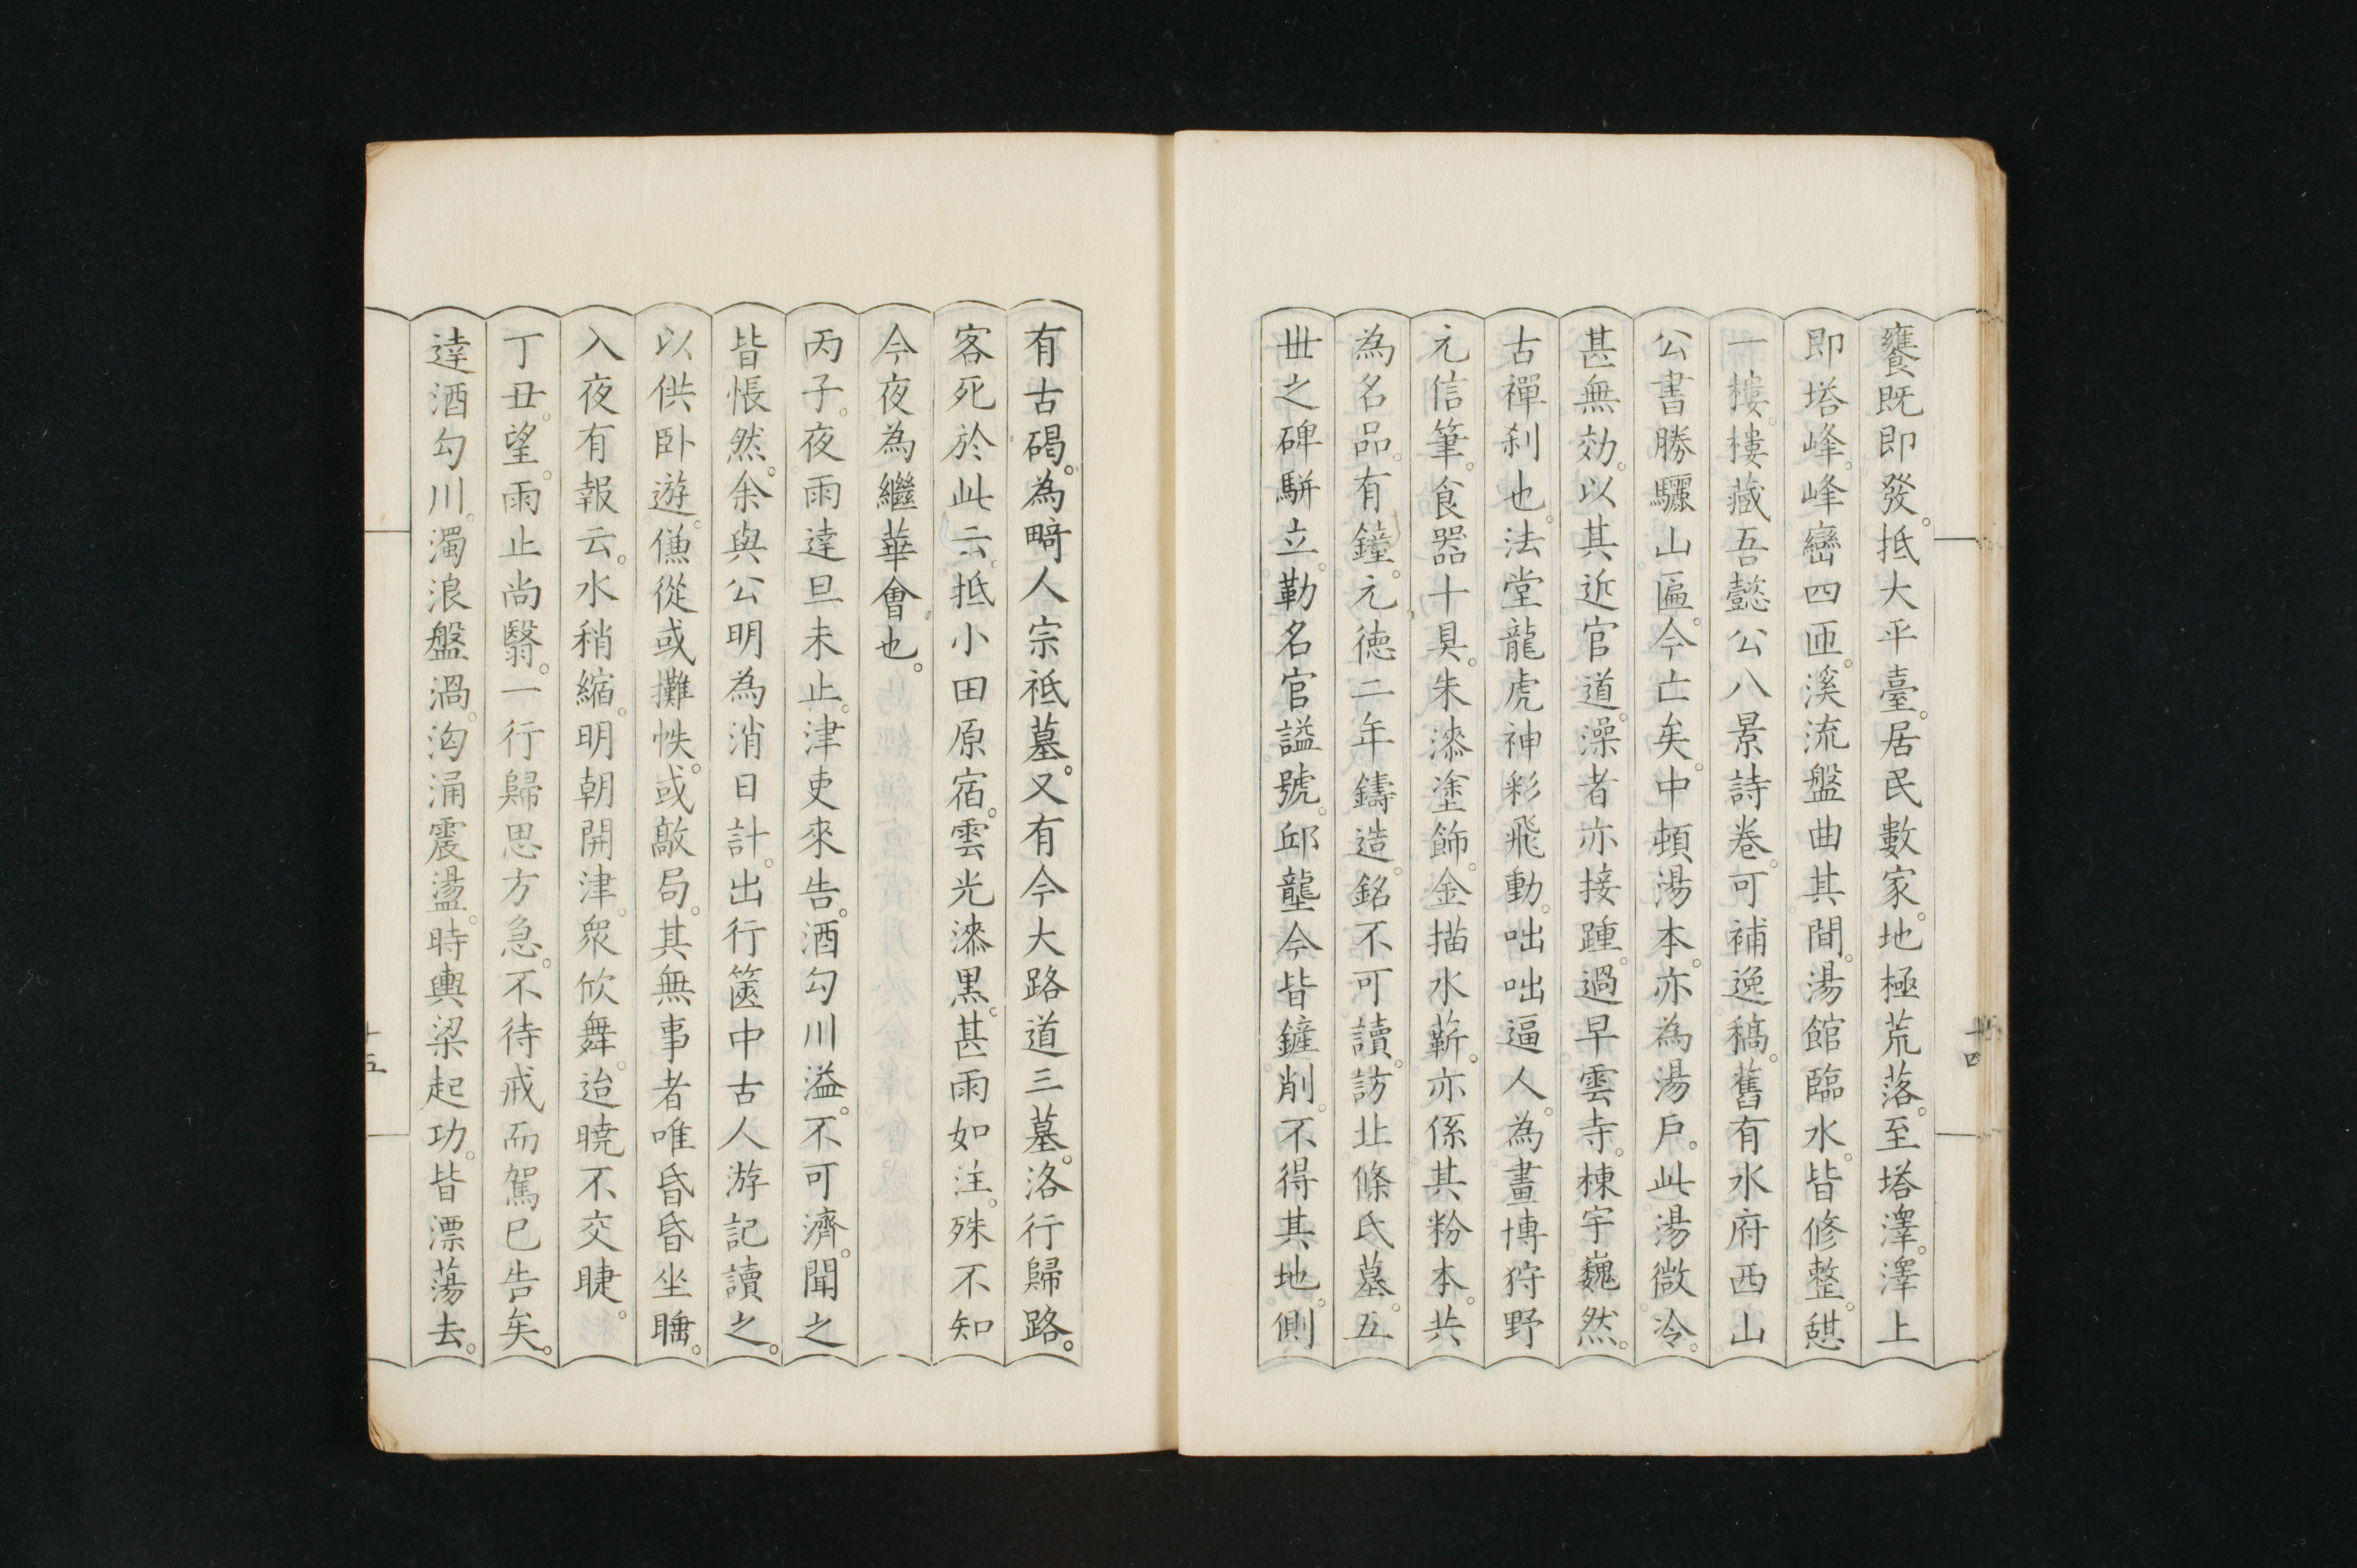 饔既即發。抵大平臺。居民數家。地極荒落。至塔澤。澤上
即塔峰。峰巒四匝。溪流盤曲其間。湯館臨水。皆修整。憇
一樓。樓藏吾懿公八景詩卷。可補逸稿。舊有水府西山
公書勝驪山匾。今亡矣。中頓湯本。亦為湯戶。此湯微冷。
甚無効。以其近官道。澡者亦接踵。過早雲寺。棟宇巍然。
古禪刹也。法堂龍虎神彩飛動。咄咄逼人。為畫博狩野
元信筆。食器十具。朱漆塗飾。金描水蘄。亦係其粉本。共
為名品。有鐘。元德二年鑄造。銘不可讀。訪北條氏墓。五
世之碑駢立。勒名官謚號。邱壟今皆鏟削。不得其地。側
有古碣。為畸人宗祇墓。又有今大路道三墓。洛行歸路。
客死於此云。抵小田原宿。雲光漆黑。甚雨如注。殊不知
今夜為繼華會也。
丙子。夜雨達旦未止。津吏來告。酒匂川溢。不可濟。聞之
皆悵然。余與公明為消日計。出行篋中古人游記讀之。
以供卧遊。傔從或攤帙。或敲局。其無事者唯昏昏坐睡。
入夜有報云。水稍縮。明朝開津。衆欣舞。迨曉不交睫。
丁丑。望。雨止尚翳。一行歸思方急。不待戒而駕已告矣。
達酒匂川。濁浪盤渦。洶涌震盪。時輿梁起功。皆漂蕩去。
十四
十五